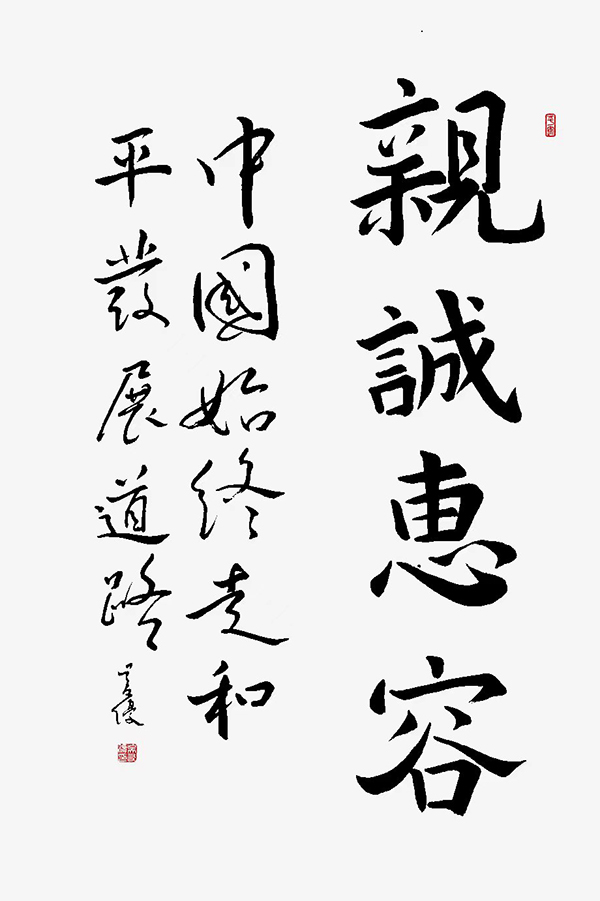 親誠惠容
中國始終走和
平發展道路